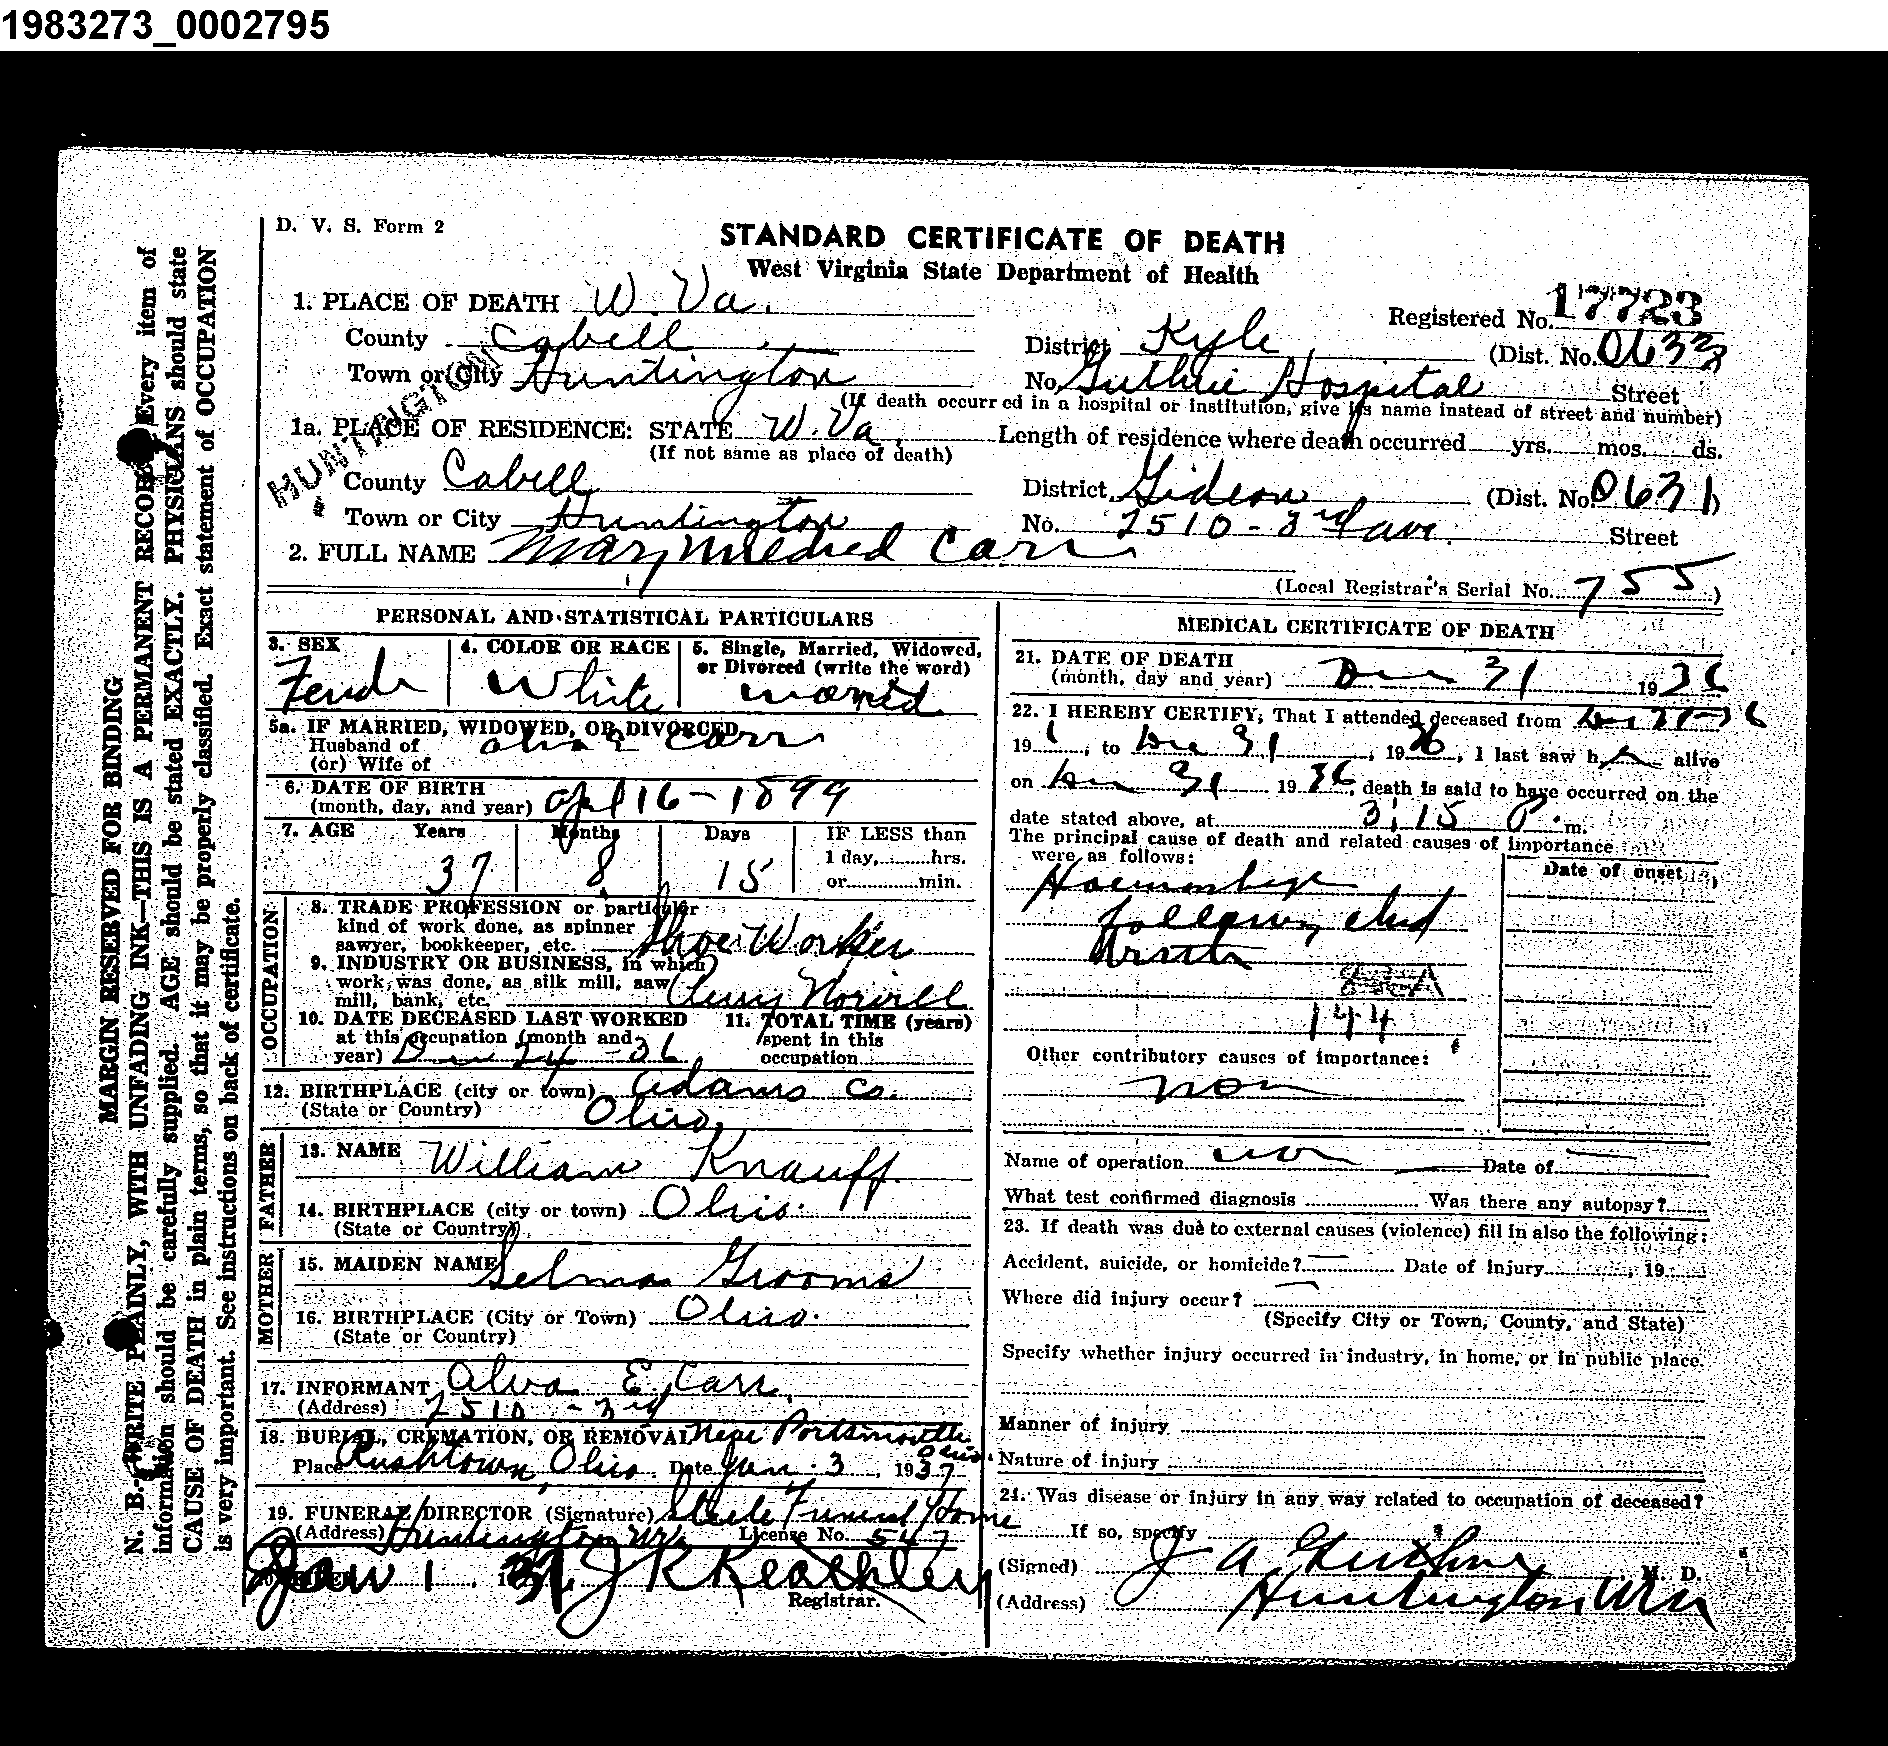 1983273_0002795
D. V. S. Form 2
STANDARD CERTIFICATE OF DEATH
West Virginia State Department of Health
1. PLACE OF DEATH W. Va.
Registered No. 17723
County Cabell District Kyle (Dist. No. 0633)
Town or City Huntington No. Guthrie Hospital Street
(If death occurred in a hospital or institution, give its name instead of street and number)
HUNTINGTON
1a. PLACE OF RESIDENCE: STATE W. Va. Length of residence where death occurred yrs. mos. ds.
(If not same as place of death)
County Cabell District Gideon (Dist. No. 0631)
Town or City Huntington No. 2510 - 3rd ave. Street
2. FULL NAME Mary Mildred Carr
(Local Registrar's Serial No. 755)
PERSONAL AND STATISTICAL PARTICULARS
3. SEX Female
4. COLOR OR RACE White
5. Single, Married, Widowed, or Divorced (write the word) married
5a. IF MARRIED, WIDOWED, OR DIVORCED
Husband of
(or) Wife of Alva E Carr
6. DATE OF BIRTH
(month, day, and year) Apl 16 - 1899
7. AGE Years Months Days IF LESS than
1 day, hrs.
37 8 15 or min.
OCCUPATION
8. TRADE PROFESSION or particular
kind of work done, as spinner
sawyer, bookkeeper, etc. Shoe Worker
9. INDUSTRY OR BUSINESS, in which
work was done, as silk mill, saw
mill, bank, etc. Norvell
10. DATE DECEASED LAST WORKED
at this occupation (month and
year) Dec 24 - 36
11. TOTAL TIME (years)
spent in this
occupation
12. BIRTHPLACE (city or town) Adams Co.
(State or Country) Ohio
FATHER
13. NAME William Knauff
14. BIRTHPLACE (city or town) Ohio.
(State or Country)
MOTHER
15. MAIDEN NAME Selma Grooms
16. BIRTHPLACE (City or Town) Ohio.
(State or Country)
17. INFORMANT Alva E Carr
(Address) 2510 - 3rd
18. BURIAL, CREMATION, OR REMOVAL Near Portsmouth Ohio.
Place Rushtown, Ohio Date Jan. 3, 1937
19. FUNERAL DIRECTOR (Signature) Steele Funeral Home
(Address) Huntington W Va License No. 547
Jan 1, 37 J K Keathley
Registrar.
MEDICAL CERTIFICATE OF DEATH
21. DATE OF DEATH
(month, day and year) Dec 31 1936
22. I HEREBY CERTIFY, That I attended deceased from
19 , to Dec 31, 1936, I last saw her alive
on Dec 31 1936, death is said to have occurred on the
date stated above, at 3:15 P. m.
The principal cause of death and related causes of importance
were as follows:
Date of onset
Haemorrhage
following child
birth
144
Other contributory causes of importance:
non
Name of operation non Date of
What test confirmed diagnosis Was there any autopsy?
23. If death was due to external causes (violence) fill in also the following:
Accident, suicide, or homicide? Date of injury , 19
Where did injury occur?
(Specify City or Town, County, and State)
Specify whether injury occurred in industry, in home, or in public place.
Manner of injury
Nature of injury
24. Was disease or injury in any way related to occupation of deceased?
If so, specify
(Signed) J A Guthrie, M. D.
(Address) Huntington, W Va
MARGIN RESERVED FOR BINDING
N. B.—WRITE PLAINLY, WITH UNFADING INK—THIS IS A PERMANENT RECORD. Every item of
information should be carefully supplied. AGE should be stated EXACTLY. PHYSICIANS should state
CAUSE OF DEATH in plain terms, so that it may be properly classified. Exact statement of OCCUPATION
is very important. See instructions on back of certificate.